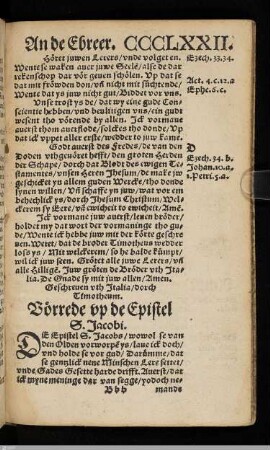 An de Ebreer. CCCLXXII.
Höret juwen Lerers / vnde volget en.
Wente se waken auer juwe Seele / alse de dar
rekenschop dar vör geuen schölen. Vp dat se
dat mit fröwden don / vñ nicht mit süchtende /
Wente dat ys juw nicht gut / Bidder vor vns.
Unse trost ys de / dat wy eine gude Con=
scientie hebben / vnd beulitigen vns / ein gudt
wesent tho vörende by allen. Ick vormane
auerst thom auerflode / solckes tho donde / Vp
dat ick vppet aller erste / wedder to juw kame.
Godt auerst des Fredes / de van den
Doden vthgeuöret hefft / den groten Herden
der Schape / dorch dat Blodt des ewigen Te=
stamentes / vnsen Heren Jhesum / de make ju=
w geschicket yn allem guden Wercke / tho donde
synen willen / Vñ schaffe yn juw / wat vor em
behechlick ys / dorch Jhesum Christum / Wel=
ckerem sy Eere / vñ ewicheit to ewicheit / Amē.
Ick vormane juw auerst / leuen bröder /
holdet my dat wort der vormaninge tho gu=
de / Wente ick hebbe juw mit der körte geschre=
uen. Wetet / dat de broder Timotheus wedder
loss ys / Mit welckerem / so he balde kümpt /
wil ick juw seen. Grötet alle juwe Lerers / vñ
alle Hilligē. Juw gröten de Bröder vth Jta=
lia. De Gnade sy mit juw allen / Amen.
Geschreuen vth Jtalia / dorch
Timotheum.
Vörrede vp de Epistel
S. Jacobi.
DE Epistel S. Jacobs / wowol se van
den Olden vorworpē ys / laue ick doch /
vnd holde se vor gud / Darümme / dat
se gentzlick nene Minschen Lere settet /
vnde Gades Gesette harde drifft. Auerst / dat
ick myne meninge dar van segge / yodoch ne=
Bbb mande
Ezech. 33.34.
Act. 4.c.12.a
Ephe. 6.c.
D
Ezech. 34. b.
Johan. 10.a.
1. Petri. 5.a.